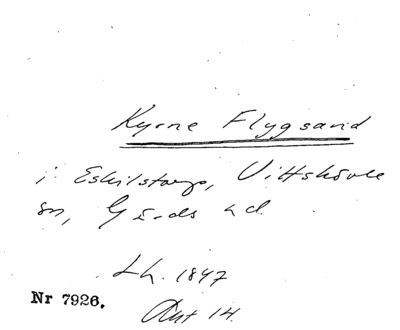 Kyrne Flygsand
i Eskilstorp, Vittskövle
sn, Gärds hd.
Lh. 1847
Nr 7926.
Akt 14.